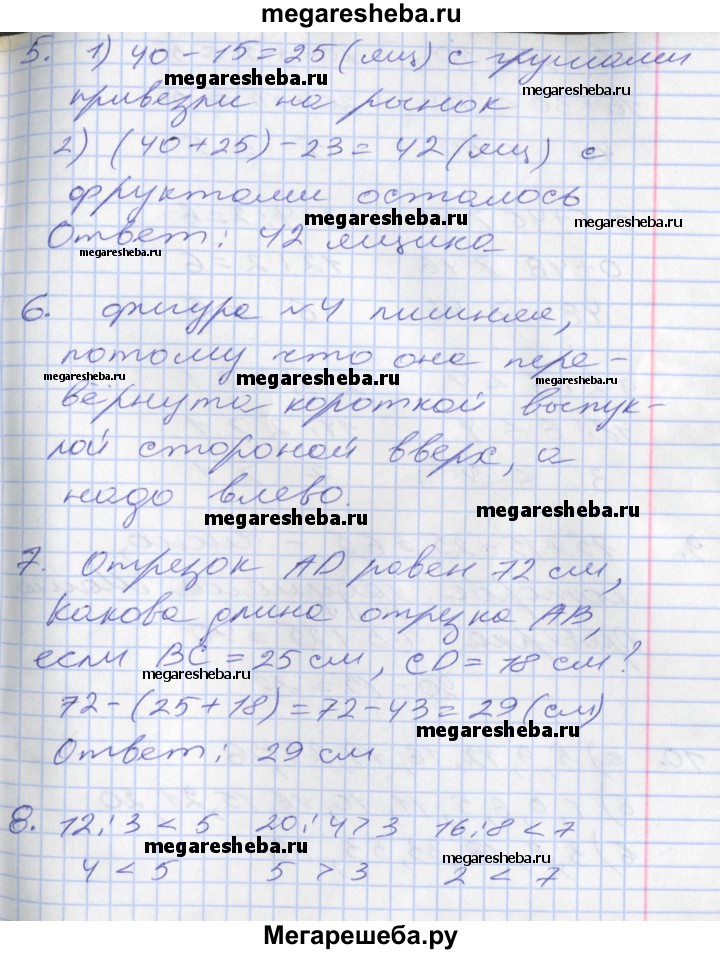 megaresheba.ru
5. 1) 40 - 15 = 25 (ящ) с грушами
megaresheba.ru
привезли на рынок
megaresheba.ru
2) (40+25) - 23 = 42 (ящ) с
фруктами осталось
megaresheba.ru
megaresheba.ru
Ответ: 42 ящика
megaresheba.ru
megaresheba.ru
6. фигура №4 лишняя,
потому что она пере-
megaresheba.ru
megaresheba.ru
megaresheba.ru
вёрнута короткой выпук-
лой стороной вверх, а
надо влево.
megaresheba.ru
megaresheba.ru
7. Отрезок AD равен 72 см,
megaresheba.ru
Какова длина отрезка AB,
megaresheba.ru
если BC = 25 см, CD = 18 см?
megaresheba.ru
72 - (25 + 18) = 72 - 43 = 29 (см)
megaresheba.ru
Ответ: 29 см
8. 12 : 3 < 5 20 : 4 > 3 16 : 8 < 7
megaresheba.ru
megaresheba.ru
4 < 5 5 > 3 2 < 7
Мегарешеба.ру